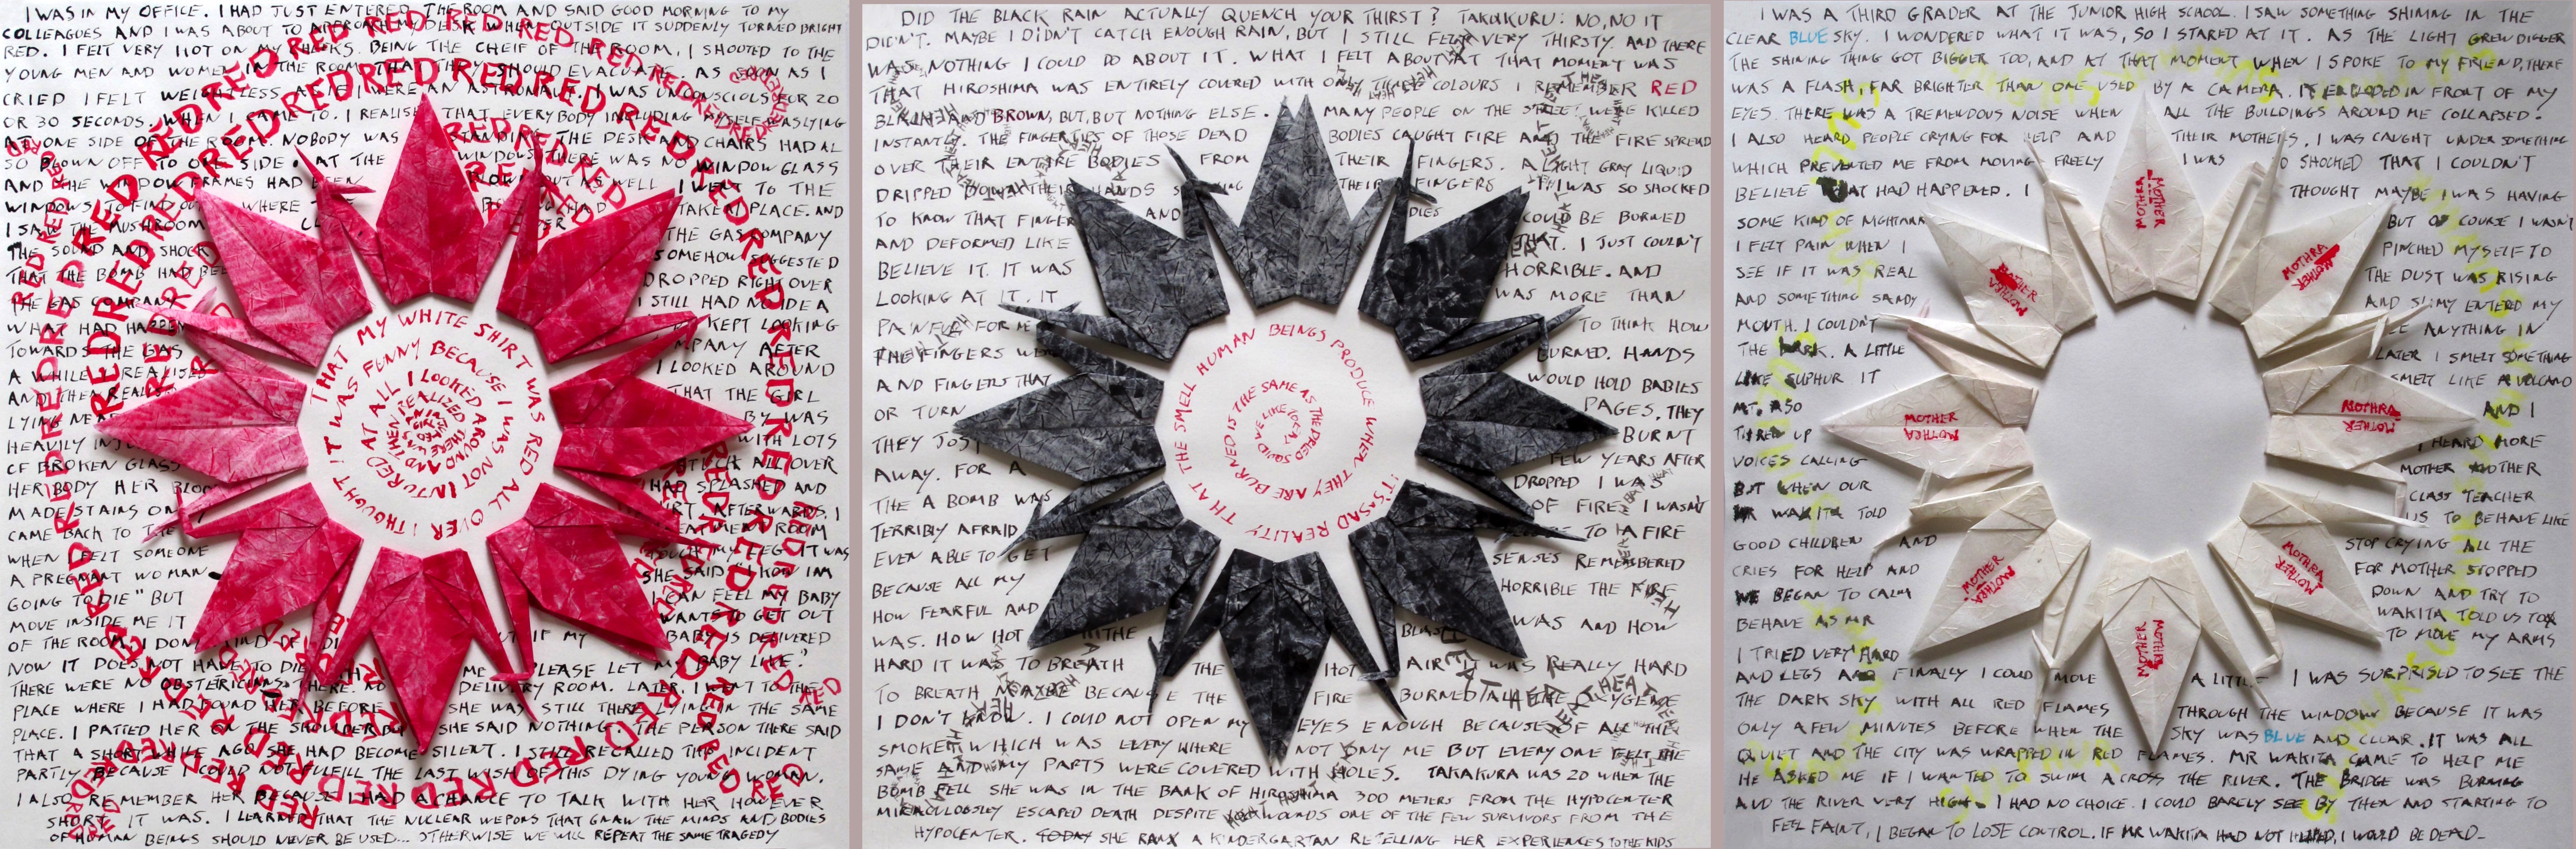 I WAS IN MY OFFICE. I HAD JUST ENTERED THE ROOM AND SAID GOOD MORNING TO MY
COLLEAGUES AND I WAS ABOUT TO APPROACH MY DESK WHEN OUTSIDE IT SUDDENLY TURNED BRIGHT
RED. I FELT VERY HOT ON MY CHEEKS. BEING THE CHEIF OF THE ROOM, I SHOUTED TO THE
YOUNG MEN AND WOMEN IN THE ROOM THAT THEY SHOULD EVACUATE. AS SOON AS I
CRIED I FELT WEIGHTLESS AS IF I WERE AN ASTRONAUT. I WAS UNCONSCIOUS FOR 20
OR 30 SECONDS. WHEN I CAME TO. I REALISED THAT EVERYBODY INCLUDING MYSELF WAS LYING
AT ONE SIDE OF THE ROOM. NOBODY WAS STANDING. THE DESK AND CHAIRS HAD AL
SO BLOWN OFF TO ONE SIDE. AT THE WINDOWS THERE WAS NO WINDOW GLASS
AND THE WINDOW FRAMES HAD BEEN BLOWN OUT AS WELL I WENT TO THE
WINDOWS TO FIND OUT WHERE HAD TAKEN PLACE. AND
I SAW THE MUSHROOM THE GAS COMPANY
THE SOUND AND SHOCK SOMEHOW SUGGESTED
THAT THE BOMB HAD BEEN DROPPED RIGHT OVER
THE GAS COMPANY I STILL HAD NO IDEA
WHAT HAD HAPPEN KEPT LOOKING
TOWARDS THE GAS COMPANY AFTER
A WHILE I REALISED I LOOKED AROUND
AND THEN REALIS THAT THE GIRL
LYING NEA BY WAS
HEAVILY INJ WITH LOTS
OF BROKEN GLASS STUCK ALL OVER
HER BODY HER BLOO HAD SPLASHED AND
MADE STAINS ON AFTERWARDS, I
CAME BACK TO THE ROOM
WHEN I FELT SOMEONE TOUCH MY LEG IT WAS
A PREGNANT WOMAN SHE SAID "I KNOW IAM
GOING TO DIE" BUT I CAN FEEL MY BABY
MOVE INSIDE ME IT WANTS TO GET OUT
OF THE ROOM I DON'T MIND IF I DI BUT IF MY BABY IS DELIVERED
NOW IT DOES NOT HAVE TO DIE WITH ME PLEASE LET MY BABY LIVE?
THERE WERE NO OBSTETRICIANS THERE. NO DELIVERY ROOM. LATER, I WENT TO THE
PLACE WHERE I HAD FOUND HER BEFORE SHE WAS STILL THERE LYING IN THE SAME
PLACE. I PATTED HER ON THE SHOULDER BUT SHE SAID NOTHING. THE PERSON THERE SAID
THAT A SHORT WHILE AGO SHE HAD BECOME SILENT. I STILL RECALLED THIS INCIDENT
PARTLY BECAUSE I COULD NOT FULFILL THE LAST WISH OF THIS DYING YOUNG WOMAN.
I ALSO REMEMBER HER BECAUSE I HAD A CHANCE TO TALK WITH HER HOWEVER
SHORT IT WAS. I LEARNED THAT THE NUCLEAR WEPONS THAT GNAW THE MINDS AND BODIES
OF HUMAN BEINGS SHOULD NEVER BE USED... OTHERWISE WE WILL REPEAT THE SAME TRAGEDY
RED RED RED RED RED RED RED
I THOUGHT THAT MY WHITE SHIRT WAS RED ALL OVER
IT WAS FUNNY BECAUSE I WAS NOT INJURED AT ALL I LOOKED AROUND AND THEN REALIZED THERE WAS
DID THE BLACK RAIN ACTUALLY QUENCH YOUR THIRST? TAKAKURU: NO, NO IT
DIDN'T. MAYBE I DIDN'T CATCH ENOUGH RAIN, BUT I STILL FELT VERY THIRSTY. AND THERE
WAS NOTHING I COULD DO ABOUT IT. WHAT I FELT ABOUT AT THAT MOMENT WAS
THAT HIROSHIMA WAS ENTIRELY COVERED WITH ONLY THREE COLOURS I REMEMBER RED
BLACK AND BROWN, BUT, BUT NOTHING ELSE. MANY PEOPLE ON THE STREET WERE KILLED
INSTANTLY. THE FINGER TIPS OF THOSE DEAD BODIES CAUGHT FIRE AND THE FIRE SPREAD
OVER THEIR ENTIRE BODIES FROM THEIR FINGERS. A LIGHT GRAY LIQUID
DRIPPED DOWN THEIR HANDS THEIR FINGERS I WAS SO SHOCKED
TO KNOW THAT FINGER AND COULD BE BURNED
AND DEFORMED LIKE THAT. I JUST COULDN'T
BELIEVE IT. IT WAS HORRIBLE. AND
LOOKING AT IT. IT WAS MORE THAN
PAINFUL FOR ME TO THINK HOW
THE FINGERS WE BURNED. HANDS
AND FINGERS THAT WOULD HOLD BABIES
OR TURN PAGES. THEY
THEY JUST BURNT
AWAY. FOR A FEW YEARS AFTER
THE A BOMB WAS DROPPED I WAS
TERRIBLY AFRAID OF FIRE I WASN'T
EVEN ABLE TO GET TO A FIRE
BECAUSE ALL MY SENSES REMEMBERED
HOW FEARFUL AND HORRIBLE THE FIRE
WAS. HOW HOT THE BLAST WAS AND HOW
HARD IT WAS TO BREATH THE HOT AIR. IT WAS REALLY HARD
TO BREATH MAYBE BECAUSE THE FIRE BURNED ALL THE
I DON'T KNOW. I COULD NOT OPEN MY EYES ENOUGH BECAUSE OF ALL THE
SMOKE WHICH WAS EVERY WHERE NOT ONLY ME BUT EVERY ONE FELT THE
SAME AND MY PARTS WERE COVERED WITH HOLES. TAKAKURA WAS 20 WHEN THE
BOMB FELL SHE WAS IN THE BANK OF HIROSHIMA 300 METERS FROM THE HYPOCENTER
MIRACULOUSLEY ESCAPED DEATH DESPITE WOUNDS ONE OF THE FEW SURVIVORS FROM THE
HYPOCENTER. TODAY SHE RANX A KINDERGARTAN RETELLING HER EXPERIENCES TO THE KIDS
IT'S SAD REALITY THAT THE SMELL HUMAN BEINGS PRODUCE WHEN THEY ARE BURNED IS THE SAME AS THE DRIED SQUID WE LIKE TO EAT
I WAS A THIRD GRADER AT THE JUNIOR HIGH SCHOOL. I SAW SOMETHING SHINING IN THE
CLEAR BLUE SKY. I WONDERED WHAT IT WAS, SO I STARED AT IT. AS THE LIGHT GREW BIGGER
THE SHINING THING GOT BIGGER TOO, AND AT THAT MOMENT WHEN I SPOKE TO MY FRIEND, THERE
WAS A FLASH, FAR BRIGHTER THAN ONE USED BY A CAMERA. IT EXPLODED IN FRONT OF MY
EYES. THERE WAS A TREMENDOUS NOISE WHEN ALL THE BUILDINGS AROUND ME COLLAPSED.
I ALSO HEARD PEOPLE CRYING FOR HELP AND THEIR MOTHERS. I WAS CAUGHT UNDER SOMETHING
WHICH PREVENTED ME FROM MOVING FREELY I WAS SO SHOCKED THAT I COULDN'T
BELIEVE WHAT HAD HAPPENED. I THOUGHT MAYBE I WAS HAVING
SOME KIND OF NIGHTMARE BUT OF COURSE I WASN'T
I FELT PAIN WHEN I PINCHED MYSELF TO
SEE IF IT WAS REAL THE DUST WAS RISING
AND SOMETHING SANDY AND SLIMY ENTERED MY
MOUTH. I COULDN'T SEE ANYTHING IN
THE DARK. A LITTLE LATER I SMELT SOMETHING
LIKE SULPHUR IT SMELT LIKE A VOLCANO
MT. ASO AND I
TIRED UP HEARD MORE
VOICES CALLING MOTHER MOTHER
BUT WHEN OUR CLASS TEACHER
MR WAKITA TOLD US TO BEHAVE LIKE
GOOD CHILDREN AND STOP CRYING ALL THE
CRIES FOR HELP AND FOR MOTHER STOPPED
WE BEGAN TO CALM DOWN AND TRY TO
BEHAVE AS MR WAKITA TOLD US TO
I TRIED VERY HARD TO MOVE MY ARMS
AND LEGS AND FINALLY I COULD MOVE A LITTLE I WAS SURPRISED TO SEE THE
THE DARK SKY WITH ALL RED FLAMES THROUGH THE WINDOW BECAUSE IT WAS
ONLY A FEW MINUTES BEFORE WHEN THE SKY WAS BLUE AND CLEAR. IT WAS ALL
QUIET AND THE CITY WAS WRAPPED IN RED FLAMES. MR WAKITA CAME TO HELP ME
HE ASKED ME IF I WANTED TO SWIM ACROSS THE RIVER. THE BRIDGE WAS BURNING
AND THE RIVER VERY HIGH. I HAD NO CHOICE. I COULD BARELY SEE BY THEN AND STARTING TO
FEEL FAINT, I BEGAN TO LOSE CONTROL. IF MR WAKITA HAD NOT HELPED, I WOULD BE DEAD
MOTHER MOTHRA